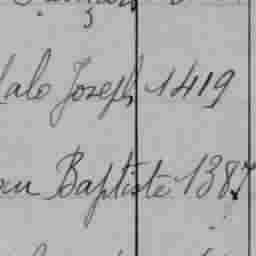 lalo Joseph 1419
an Baptiste 1387